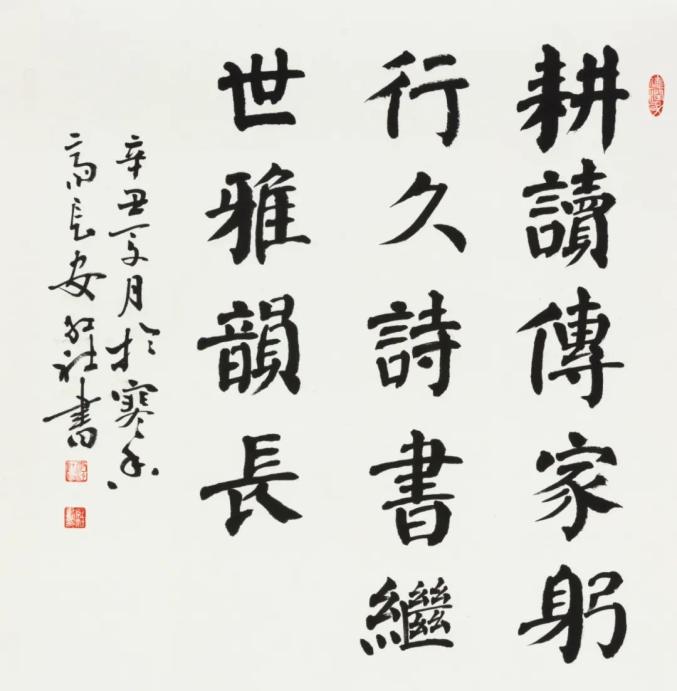 耕讀傳家躬
行久詩書繼
世雅韻長
辛丑夏月於寒香
高長安 社書